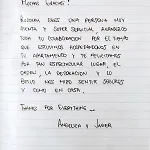 MUCHAS GRACIAS!
ERES UNA PERSONA MUY
ATENTA Y SUPER SERVICIAL, AGRADEZCO
TODA TU COLABORACION POR EL TIEMPO
QUE ESTUVIMOS HOSPEDANDONOS EN
TU APARTAMENTO Y TE FELICITAMOS
POR TAN ESPECTACULAR LUGAR, EL
ORDEN LA DECORACION Y LO
NOS HIZO SENTIR SEGUROS
Y COMO EN CASA
THANKS FOR EVERYTHING...
ANGELICA Y JAVIER